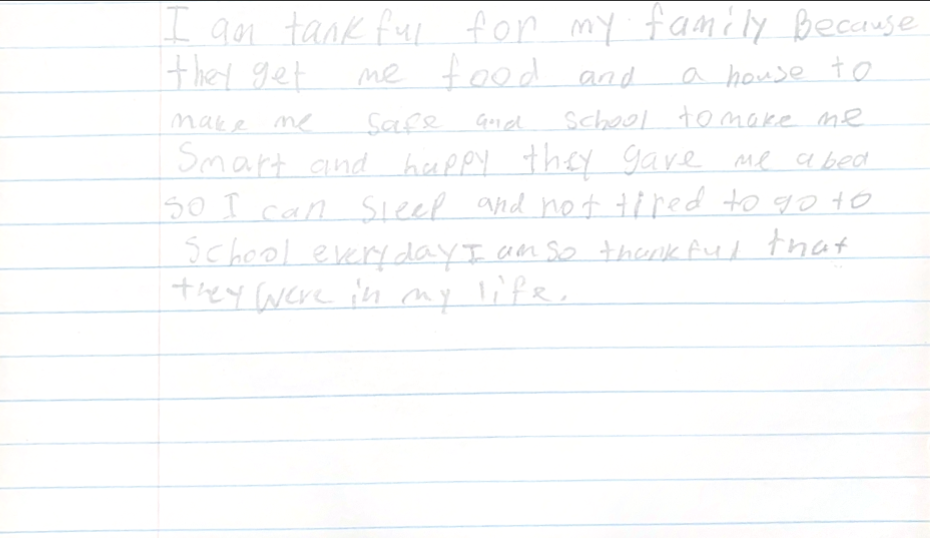 I am tankful for my family Because
they get me food and a house to
make me safe and school to make me
Smart and happy they gave me a bed
so I can sleep and not tired to go to
school everyday I am so thankful that
they were in my life.